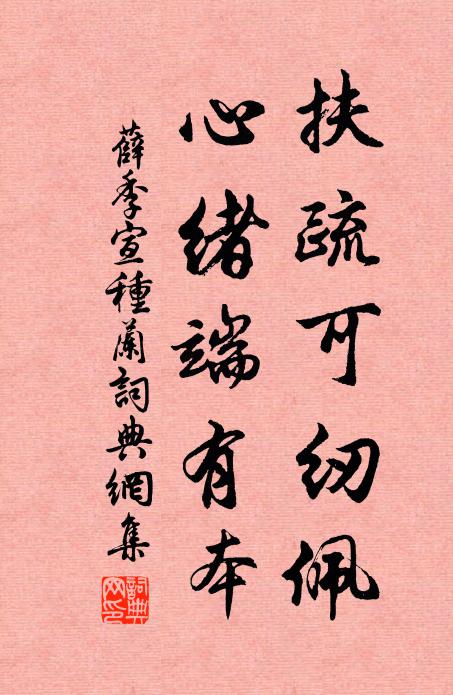 扶疏可紉佩
心緒端有本
薛季宣種蘭詞典網集
詞典網印